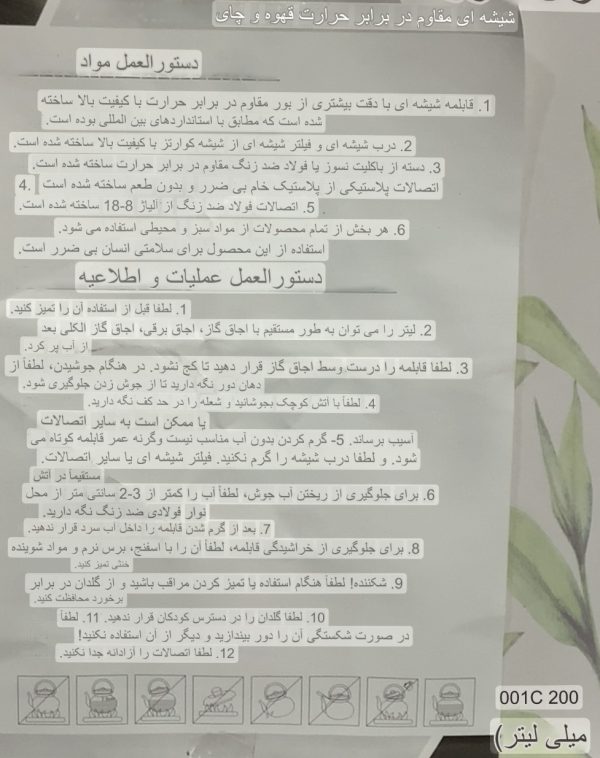 شیشه ای مقاوم در برابر حرارت قهوه و چای
دستورالعمل مواد
1. قابلمه شیشه ای با دقت بیشتری از بور مقاوم در برابر حرارت با کیفیت بالا ساخته
شده است که مطابق با استانداردهای بین المللی بوده است.
2. درب شیشه ای و فیلتر شیشه ای از شیشه کوارتز با کیفیت بالا ساخته شده است.
3. دسته از باکلیت نسوز یا فولاد ضد زنگ مقاوم در برابر حرارت ساخته شده است.
اتصالات پلاستیکی از پلاستیک خام بی ضرر و بدون طعم ساخته شده است .4
5. اتصالات فولاد ضد زنگ از الیاژ 8-18 ساخته شده است.
6. هر بخش از تمام محصولات از مواد سبز و محیطی استفاده می شود.
استفاده از این محصول برای سلامتی انسان بی ضرر است.
دستورالعمل عملیات و اطلاعیه
1. لطفا قبل از استفاده آن را تمیز کنید.
2. لیتر را می توان به طور مستقیم با اجاق گاز، اجاق برقی، اجاق گاز الکلی بعد
از آب پر کرد.
3. لطفا قابلمه را درست وسط اجاق گاز قرار دهید تا کج نشود. در هنگام جوشیدن، لطفاً از
دهان دور نگه دارید تا از جوش زدن جلوگیری شود.
4. لطفاً با آتش کوچک بجوشانید و شعله را در حد کف نگه دارید.
یا ممکن است به سایر اتصالات
آسیب برساند. 5- گرم کردن بدون آب مناسب نیست وگرنه عمر قابلمه کوتاه می
شود. و لطفا درب شیشه را گرم نکنید. فیلتر شیشه ای یا سایر اتصالات.
مستقیماً در آتش
6. برای جلوگیری از ریختن آب جوش، لطفاً آب را کمتر از 3-2 سانتی متر از محل
نوار فولادی ضد زنگ نگه دارید.
7. بعد از گرم شدن قابلمه را داخل آب سرد قرار ندهید.
8. برای جلوگیری از خراشیدگی قابلمه، لطفاً آن را با اسفنج، برس نرم و مواد شوینده
خنثی تمیز کنید.
9. شکننده! لطفاً هنگام استفاده یا تمیز کردن مراقب باشید و از گلدان در برابر
برخورد محافظت کنید.
10. لطفا گلدان را در دسترس کودکان قرار ندهید. 11. لطفاً
در صورت شکستگی آن را دور بیندازید و دیگر از آن استفاده نکنید!
12. لطفا اتصالات را آزادانه جدا نکنید.
001C 200
میلی لیتر)